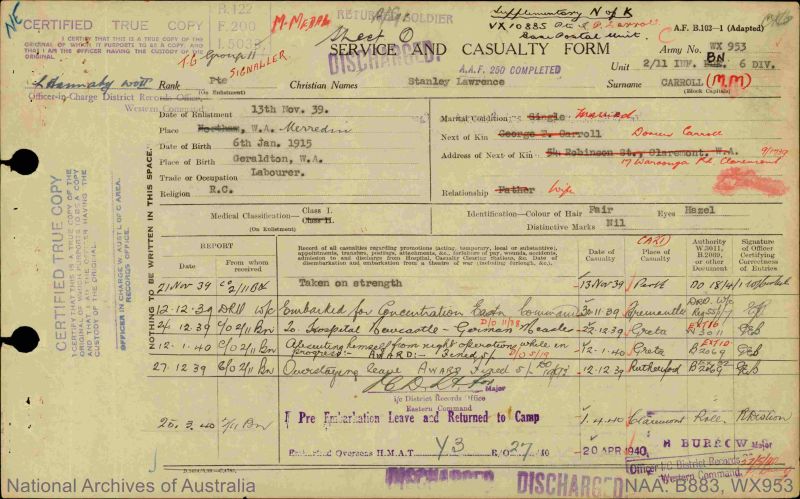 NE
1 B.122
F.200
I.5035
I CERTIFY THAT THIS IS A TRUE COPY OF THE
ORIGINAL OF WHICH IT PURPORTS TO BE A COPY
AND THAT I AM THE OFFICER HAVING THE
M-MEDAL
RETURNED SOLDIER
Sheet O
Supplementary N of K
VX 10885
Base Postal Unit.
A.F. B.103—1 (Adapted)
SERVICE AND CASUALTY FORM
DISCHARGED
A.A.F. 250 COMPLETED
Army No. WX 953
Unit 2/11 INF. BN 6 DIV.
T.G Group II
SIGNALLER
Rank Pte
(On Enlistment)
Christian Names Stanley Lawrence
SURNAME CARROLL (M.M)
(Block Capitals)
Officer-in-Charge District Records Office,
Western Command
Date of Enlistment 13th Nov. 39.
Place Northam, W.A. Merredin
Date of Birth 6th Jan. 1915
Place of Birth Geraldton, W.A.
Trade or Occupation Labourer.
Religion R.C.
Marital Condition Single Married
Next of Kin George F. Carroll Doreen Carroll
Address of Next of Kin 54 Robinson St., Claremont, W.A.
17 Waroonga Rd Claremont
Relationship Father Wife
Medical Classification Class I.
Class II.
(On Enlistment)
Identification—Colour of Hair Fair Eyes Hazel
Distinctive Marks Nil
CERTIFIED TRUE COPY
I CERTIFY THAT THIS IS A TRUE COPY OF THE
ORIGINAL OF WHICH IT PURPORTS TO BE A COPY
AND THAT I AM THE OFFICER HAVING THE
CUSTODY OF THE ORIGINAL.
OFFICER IN CHARGE W. AUST. L OF C AREA.
RECORDS OFFICE.
NOTHING TO BE WRITTEN IN THIS SPACE.
REPORT
Date
From whom received
Record of all casualties regarding promotions (acting, temporary, local or substantive), appointments, transfers, postings, attachments, &c., forfeiture of pay, wounds, accidents, admission to and discharge from Hospital, Casualty Clearing Stations, &c. Date of disembarkation and embarkation from a theatre of war (including furlough, &c.).
Date of Casualty
Place of Casualty
(CARD)
Authority W.3011, B.2069, or other Document
Signature of Officer Certifying Correctness of Entries
21 Nov 39 CO 2/11 Bn Taken on strength 13 Nov 39 Perth DO 184/1
12-12-39 DRO W/C Embarked for Concentration Eastn Command 30-11-39 Fremantle
24.12.39 C/O 2/11 Bn To Hospital Newcastle - German Measles 23-12-39 Greta B 3011
12.1.40 C/O 2/11 Bn Absenting himself from night operations while in
progress:- AWARD:- Fined 5/- 12-1-40 Greta B2069
27.12.39 C/O 2/11 Bn Overstaying leave Award Fined 5/- 12-12-39 Rutherford B2069
Major
i/c District Records Office
Eastern Command
25.3.40 2/11 Bn Pre Embarkation Leave and Returned to Camp 1.4.40 Claremont Roll
Embarked Overseas H.M.A.T. Y3 R/O 27 40 20 APR 1940
H BURROW Major
Officer I/C District Records
Western Command
DISCHARGED
DISCHARGED
National Archives of Australia
NAA: B883, WX953